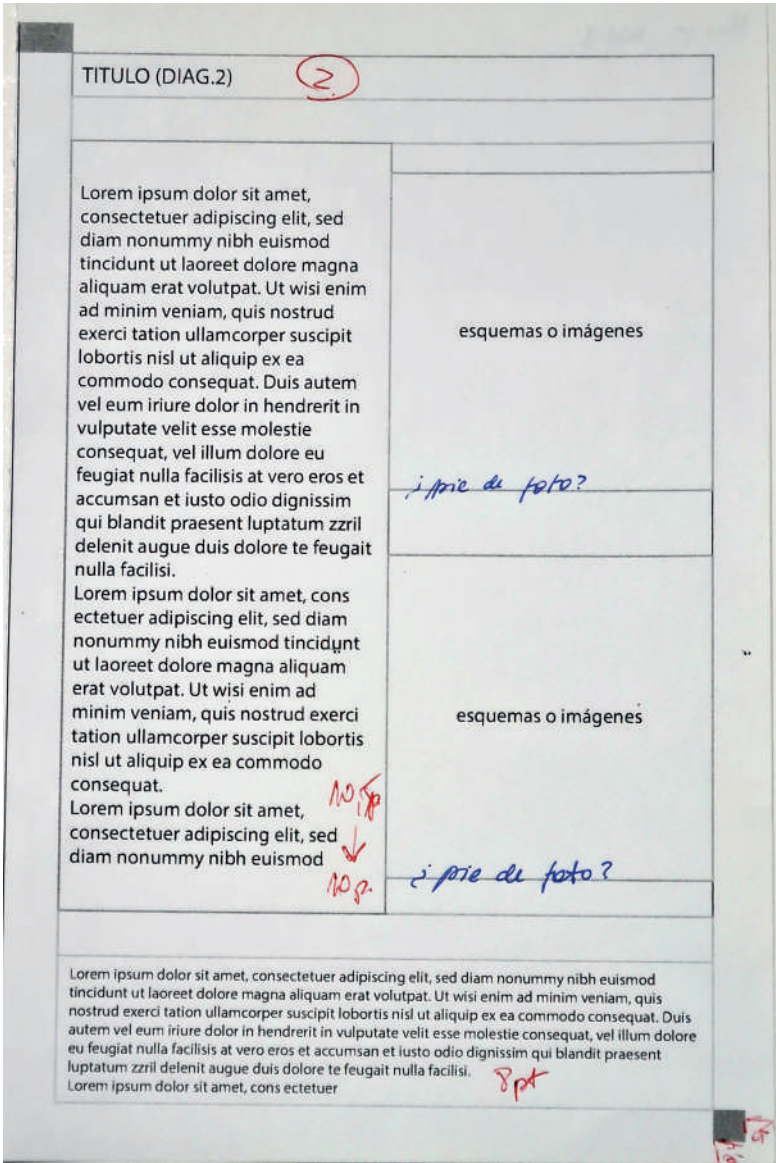 TITULO (DIAG.2)
2
Lorem ipsum dolor sit amet,
consectetuer adipiscing elit, sed
diam nonummy nibh euismod
tincidunt ut laoreet dolore magna
aliquam erat volutpat. Ut wisi enim
ad minim veniam, quis nostrud
exerci tation ullamcorper suscipit
lobortis nisl ut aliquip ex ea
commodo consequat. Duis autem
vel eum iriure dolor in hendrerit in
vulputate velit esse molestie
consequat, vel illum dolore eu
feugiat nulla facilisis at vero eros et
accumsan et iusto odio dignissim
qui blandit praesent luptatum zzril
delenit augue duis dolore te feugait
nulla facilisi.
Lorem ipsum dolor sit amet, cons
ectetuer adipiscing elit, sed diam
nonummy nibh euismod tincidunt
ut laoreet dolore magna aliquam
erat volutpat. Ut wisi enim ad
minim veniam, quis nostrud exerci
tation ullamcorper suscipit lobortis
nisl ut aliquip ex ea commodo
consequat.
Lorem ipsum dolor sit amet,
consectetuer adipiscing elit, sed
diam nonummy nibh euismod
10 p.
esquemas o imágenes
¿pie de foto?
esquemas o imágenes
¿pie de foto?
Lorem ipsum dolor sit amet, consectetuer adipiscing elit, sed diam nonummy nibh euismod
tincidunt ut laoreet dolore magna aliquam erat volutpat. Ut wisi enim ad minim veniam, quis
nostrud exerci tation ullamcorper suscipit lobortis nisl ut aliquip ex ea commodo consequat. Duis
autem vel eum iriure dolor in hendrerit in vulputate velit esse molestie consequat, vel illum dolore
eu feugiat nulla facilisis at vero eros et accumsan et iusto odio dignissim qui blandit praesent
luptatum zzril delenit augue duis dolore te feugait nulla facilisi.
Lorem ipsum dolor sit amet, cons ectetuer
8pt